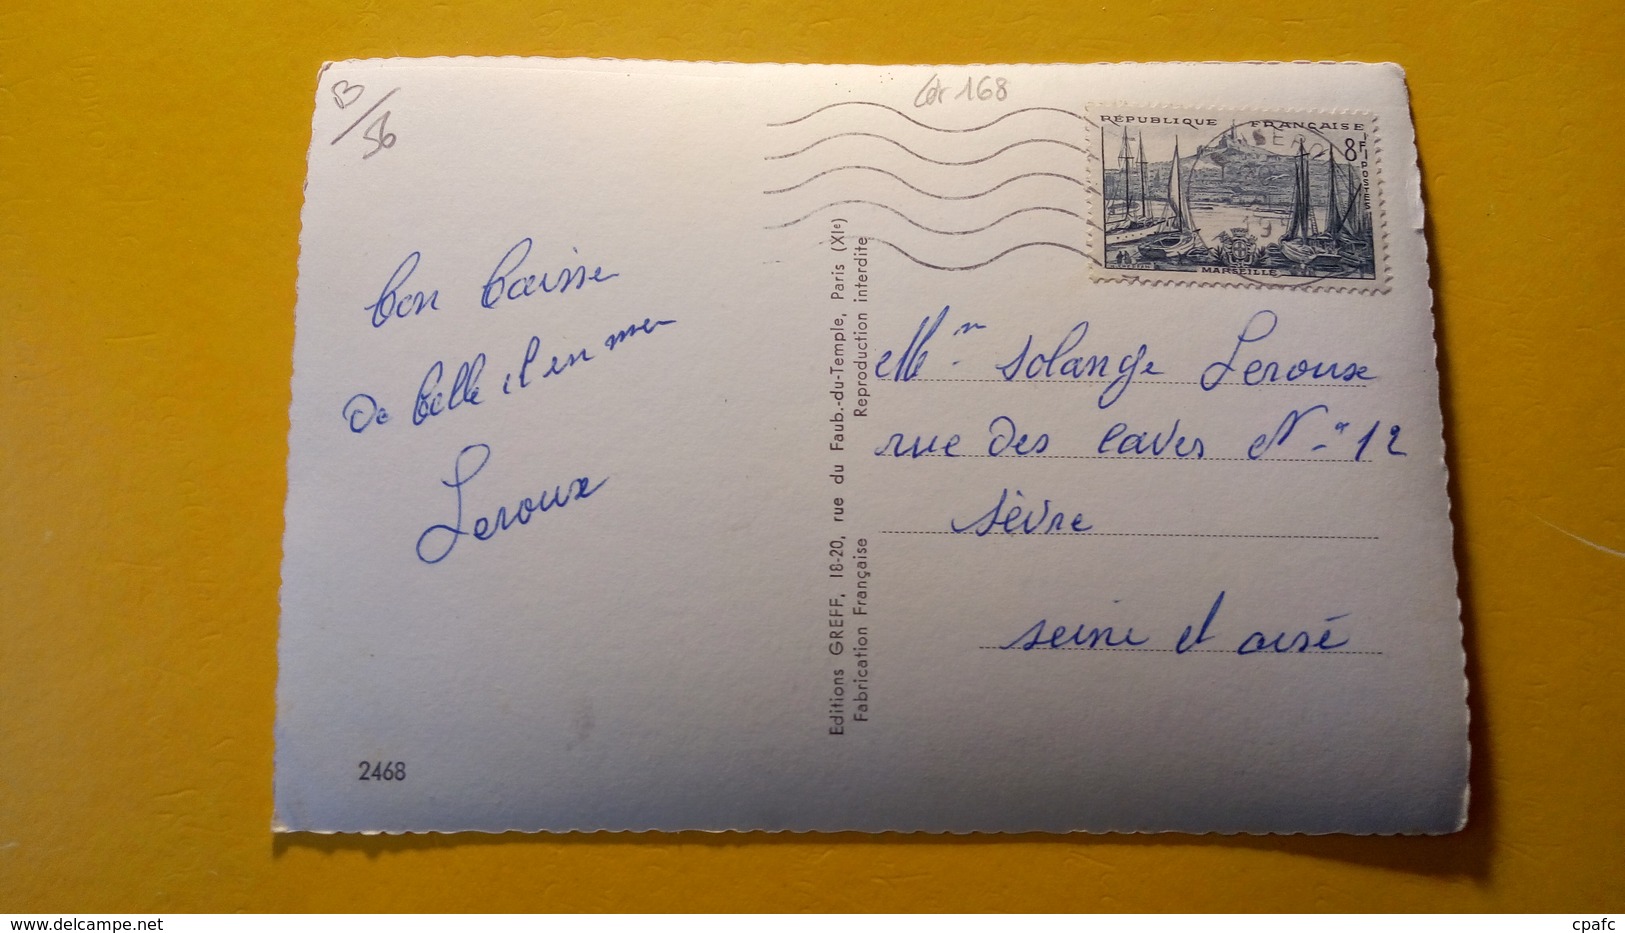 B/56
168
RÉPUBLIQUE FRANÇAISE
8F
POSTES
MARSEILLE
bon baisse
De belle il en mer
Leroux
2468
Editions GREFF, 18-20, rue du Faub.-du-Temple, Paris (XIe)
Fabrication Française Reproduction interdite
Mm solange Leroux
rue Des caves N° 12
sèvre
seine et oise
cpafc